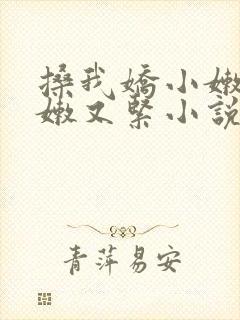 搡我嬌小嫩
嫩又緊小說
青萍易安